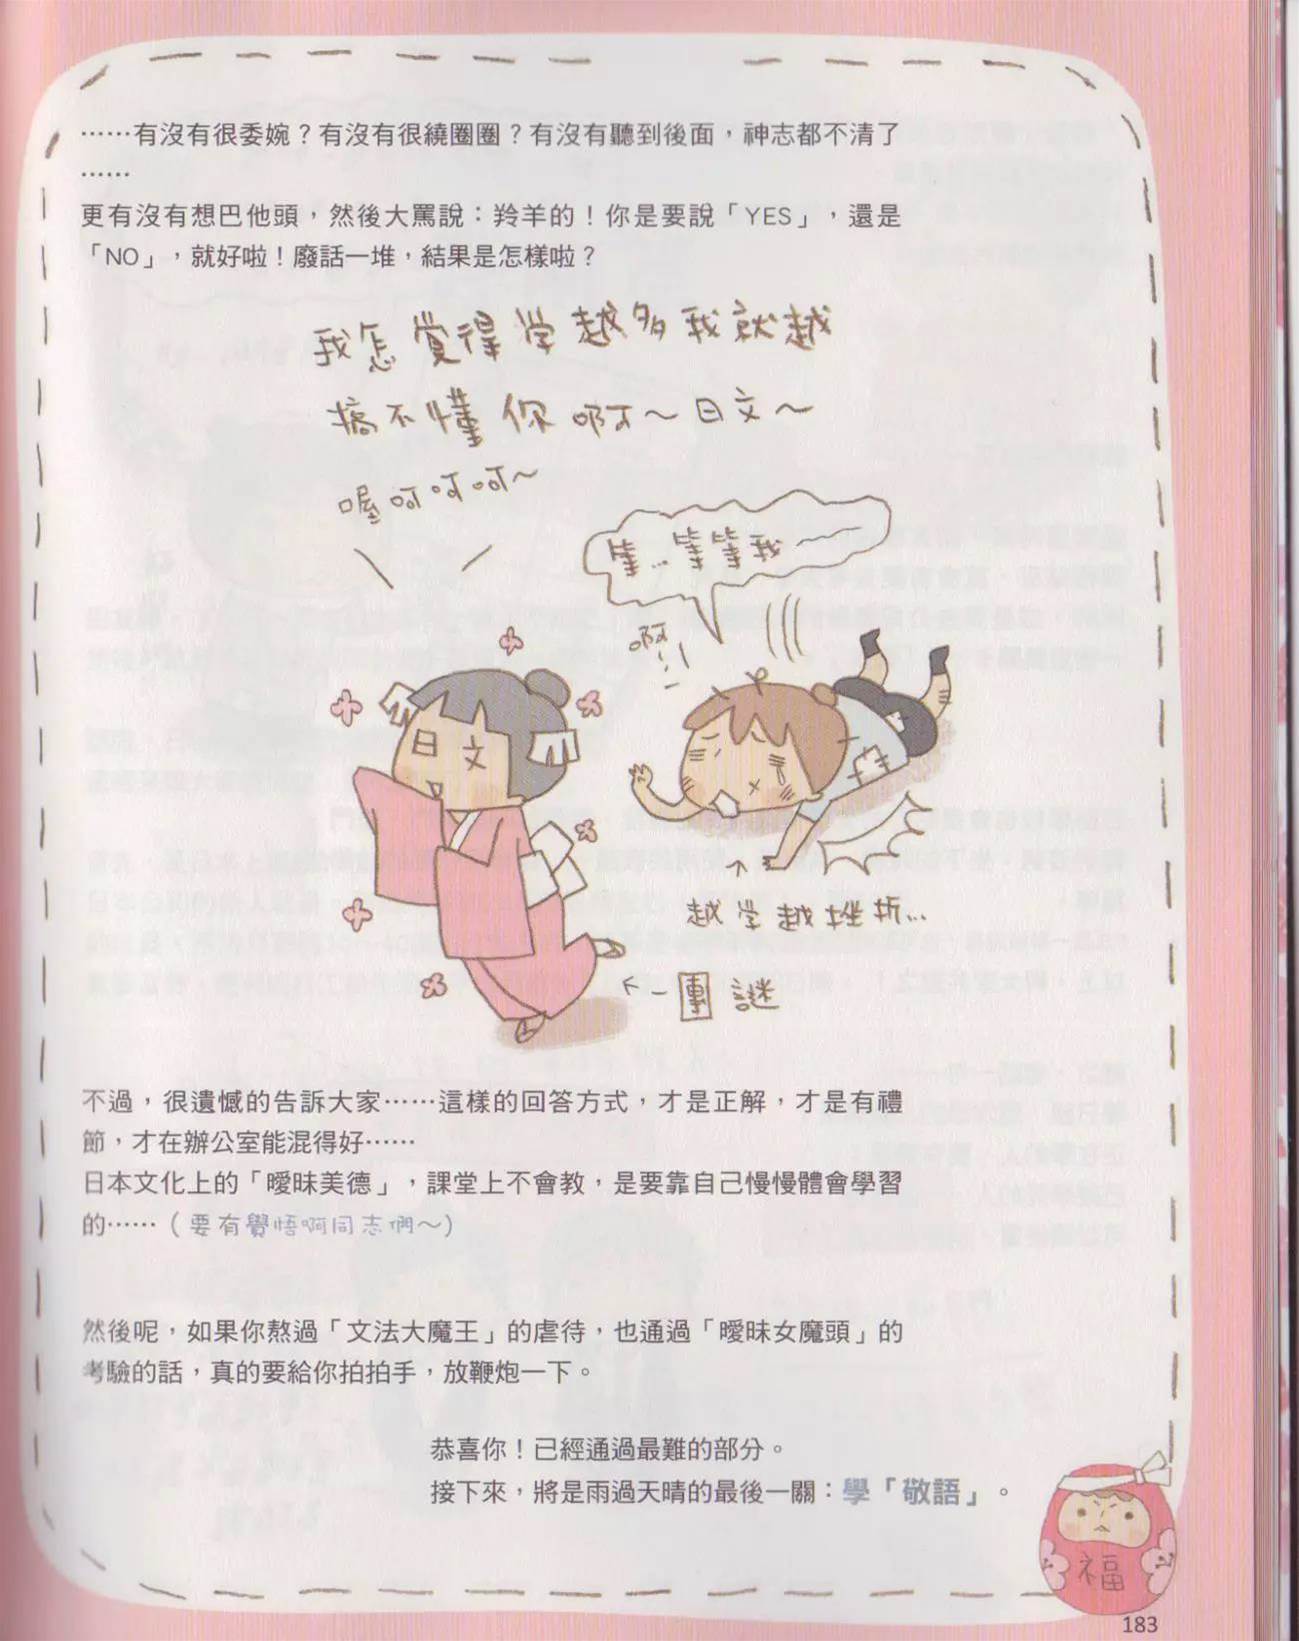 ……有沒有很委婉？有沒有很繞圈圈？有沒有聽到後面，神志都不清了
……
更有沒有想巴他頭，然後大罵說：羚羊的！你是要說「YES」，還是
「NO」，就好啦！廢話一堆，結果是怎樣啦？
我怎覺得学越多我就越
搞不懂你啊～日文～
喔呵呵呵～
等…等等我～
啊!!
日文
越学越挫折…
←一團謎
不過，很遺憾的告訴大家……這樣的回答方式，才是正解，才是有禮
節，才在辦公室能混得好……
日本文化上的「曖昧美德」，課堂上不會教，是要靠自己慢慢體會學習
的……（要有覺悟啊同志們～）
然後呢，如果你熬過「文法大魔王」的虐待，也通過「曖昧女魔頭」的
考驗的話，真的要給你拍拍手，放鞭炮一下。
恭喜你！已經通過最難的部分。
接下來，將是雨過天晴的最後一關：學「敬語」。
福
183